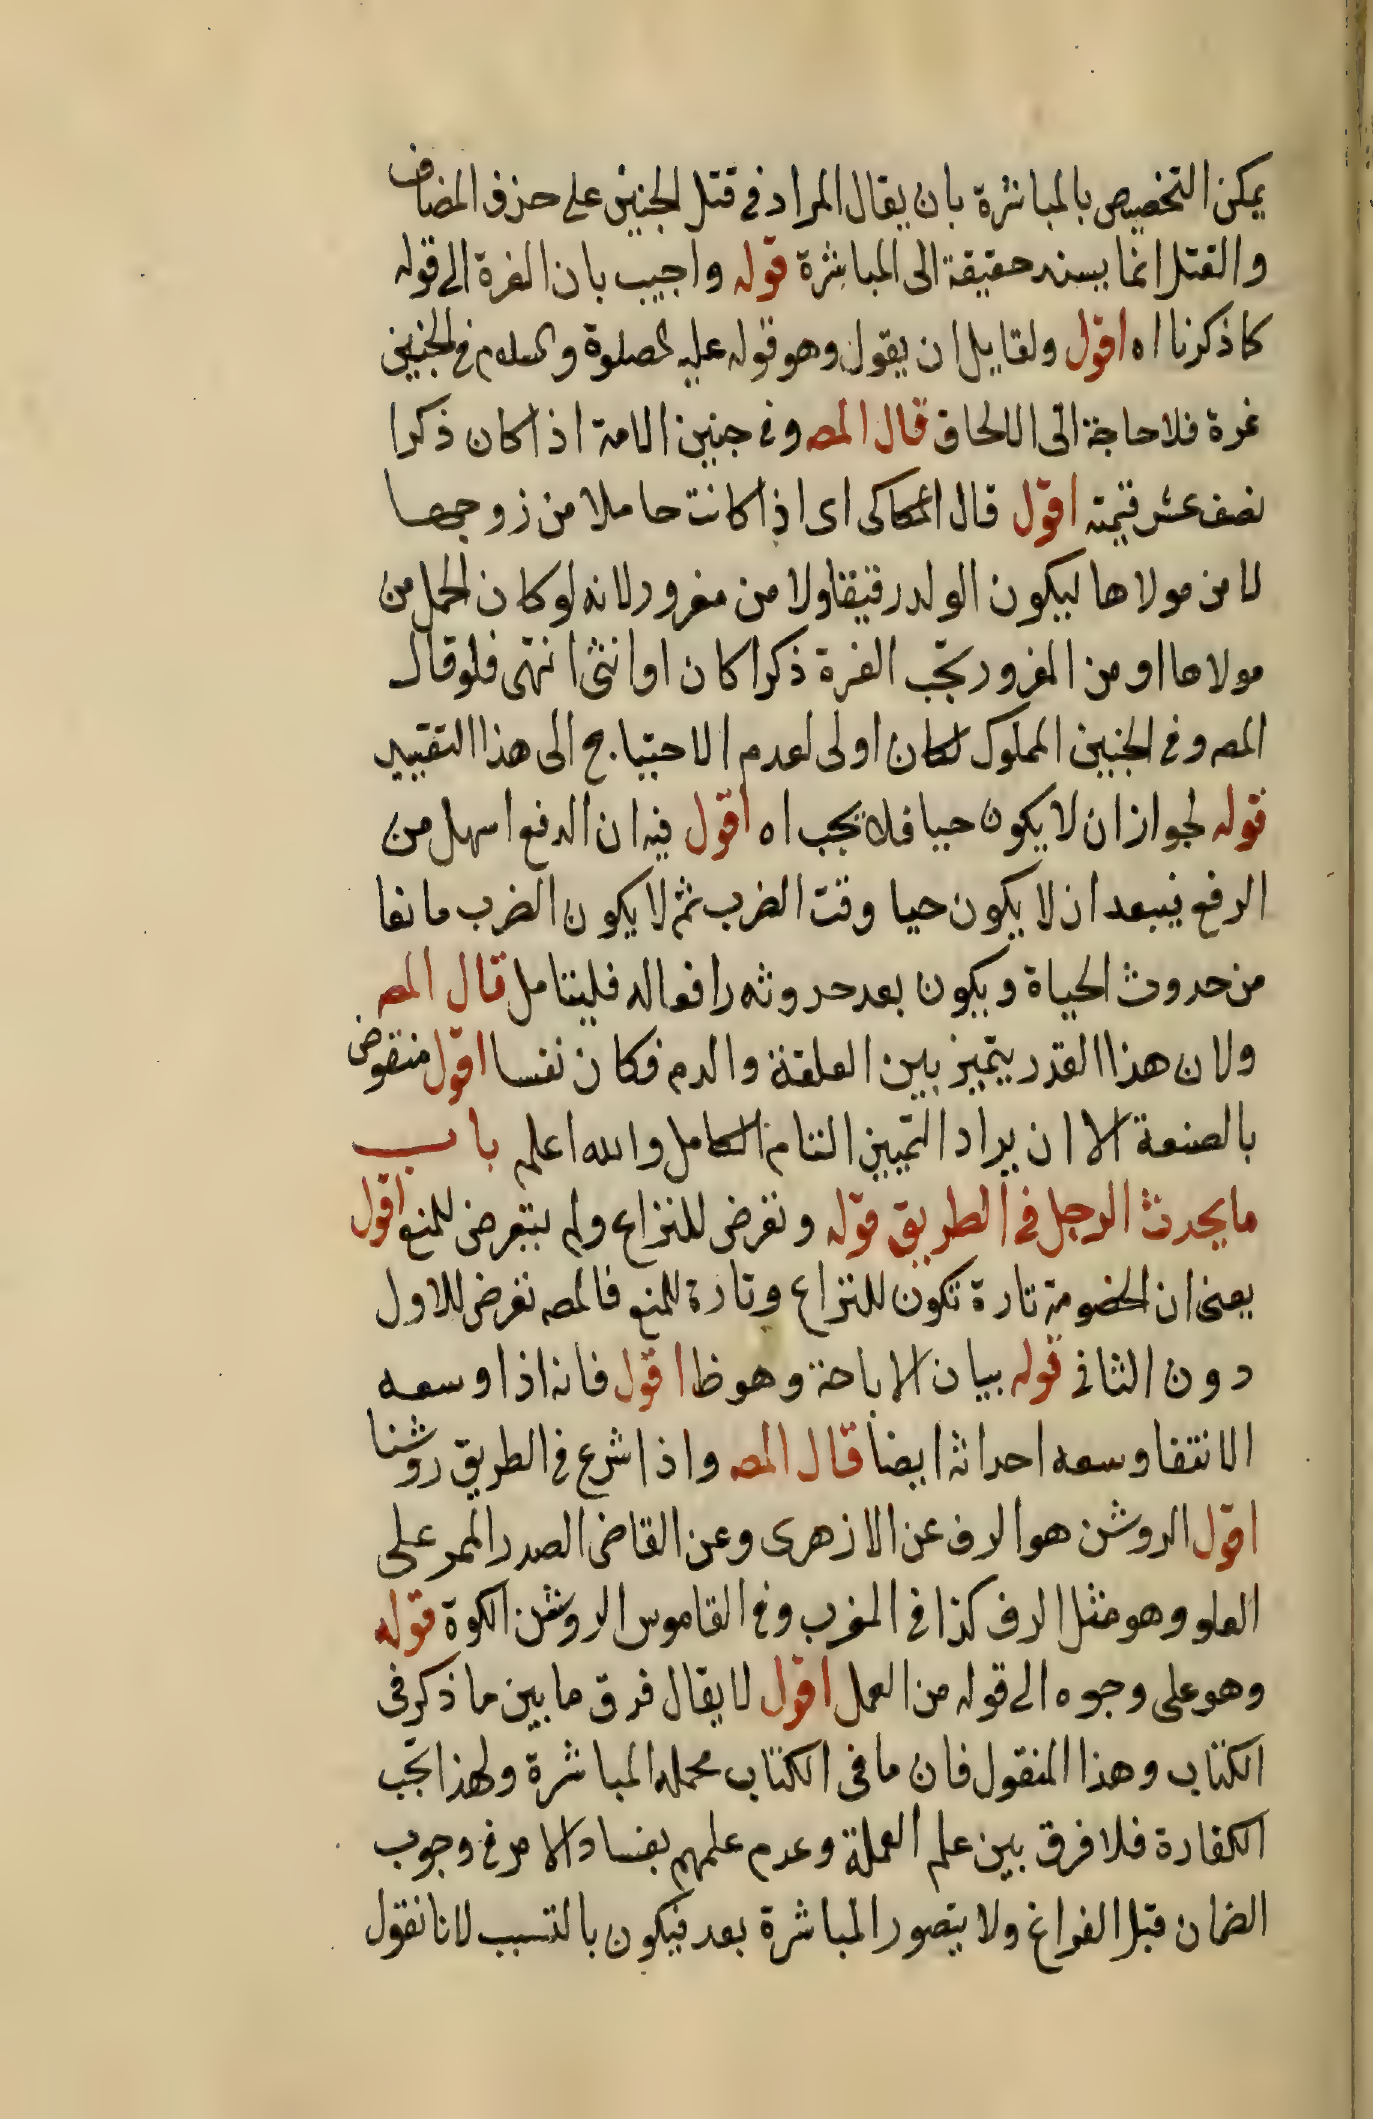 يمكن التخصيص بالمباشرة بان يقال المراد في قتل الجنين على حذف المضاف
والقتل انما يسند حقيقة الى المباشرة قوله واجيب بان الغرة الى قوله
كما ذكرنا اه اقول ولقايل ان يقول وهو قوله عليه الصلوة والسلام في الجنين
غرة فلا حاجة الى الالحاق قال المص وفي جنين الامة اذا كان ذكرا
نصف عشر قيمته اقول قال الكاكى اى اذا كانت حاملا من زوجها
لا من مولاها ليكون الولد رقيقا ولا من مغرور لانه لو كان الحمل من
مولاها او من المغرور تجب الغرة ذكرا كان او انثى انتهى فلو قال
المص وفي الجنين المملوك لكان اولى لعدم الاحتياج الى هذا التقييد
قوله لجواز ان لا يكون حيا فلا يجب اه اقول فيه ان الدفع اسهل من
الرفع فيبعد ان لا يكون حيا وقت الضرب ثم لا يكون الضرب مانعا
من حدوث الحياة ويكون بعد حدوثه رافعا له فليتامل قال المص
ولان هذا القدر يتميز بين العلقة والدم فكان نفسا اقول منقوض
بالصنعة الا ان يراد التمييز التام الكامل والله اعلم باب
ما يحدث الرجل في الطريق قوله ونعرض للنزاع ولم يتعرض للمنع اقول
يعنى ان الخصومة تارة تكون للنزاع وتارة للمنع فالمص نعرض للاول
دون الثاني قوله بيان الاباحة وهو ظ اقول فانه اذا وسعه
الانتفا وسعه احداثه ايضا قال المص واذا شرع في الطريق روشنا
اقول الروشن هو الرف عن الازهرى وعن القاضى الصدر الممر على
العلو وهو مثل الرف كذا في المغرب وفي القاموس الروشن الكوة قوله
وهو على وجوه الى قوله من العمل اقول لا يقال فرق ما بين ما ذكر في
الكتاب وهذا المنقول فان ما في الكتاب محمله المباشرة ولهذا تجب
الكفارة فلا فرق بين علم العملة وعدم علمهم بفساد الامر في وجوب
الضمان قبل الفراغ ولا يتصور المباشرة بعد فيكون بالتسبب لانا نقول